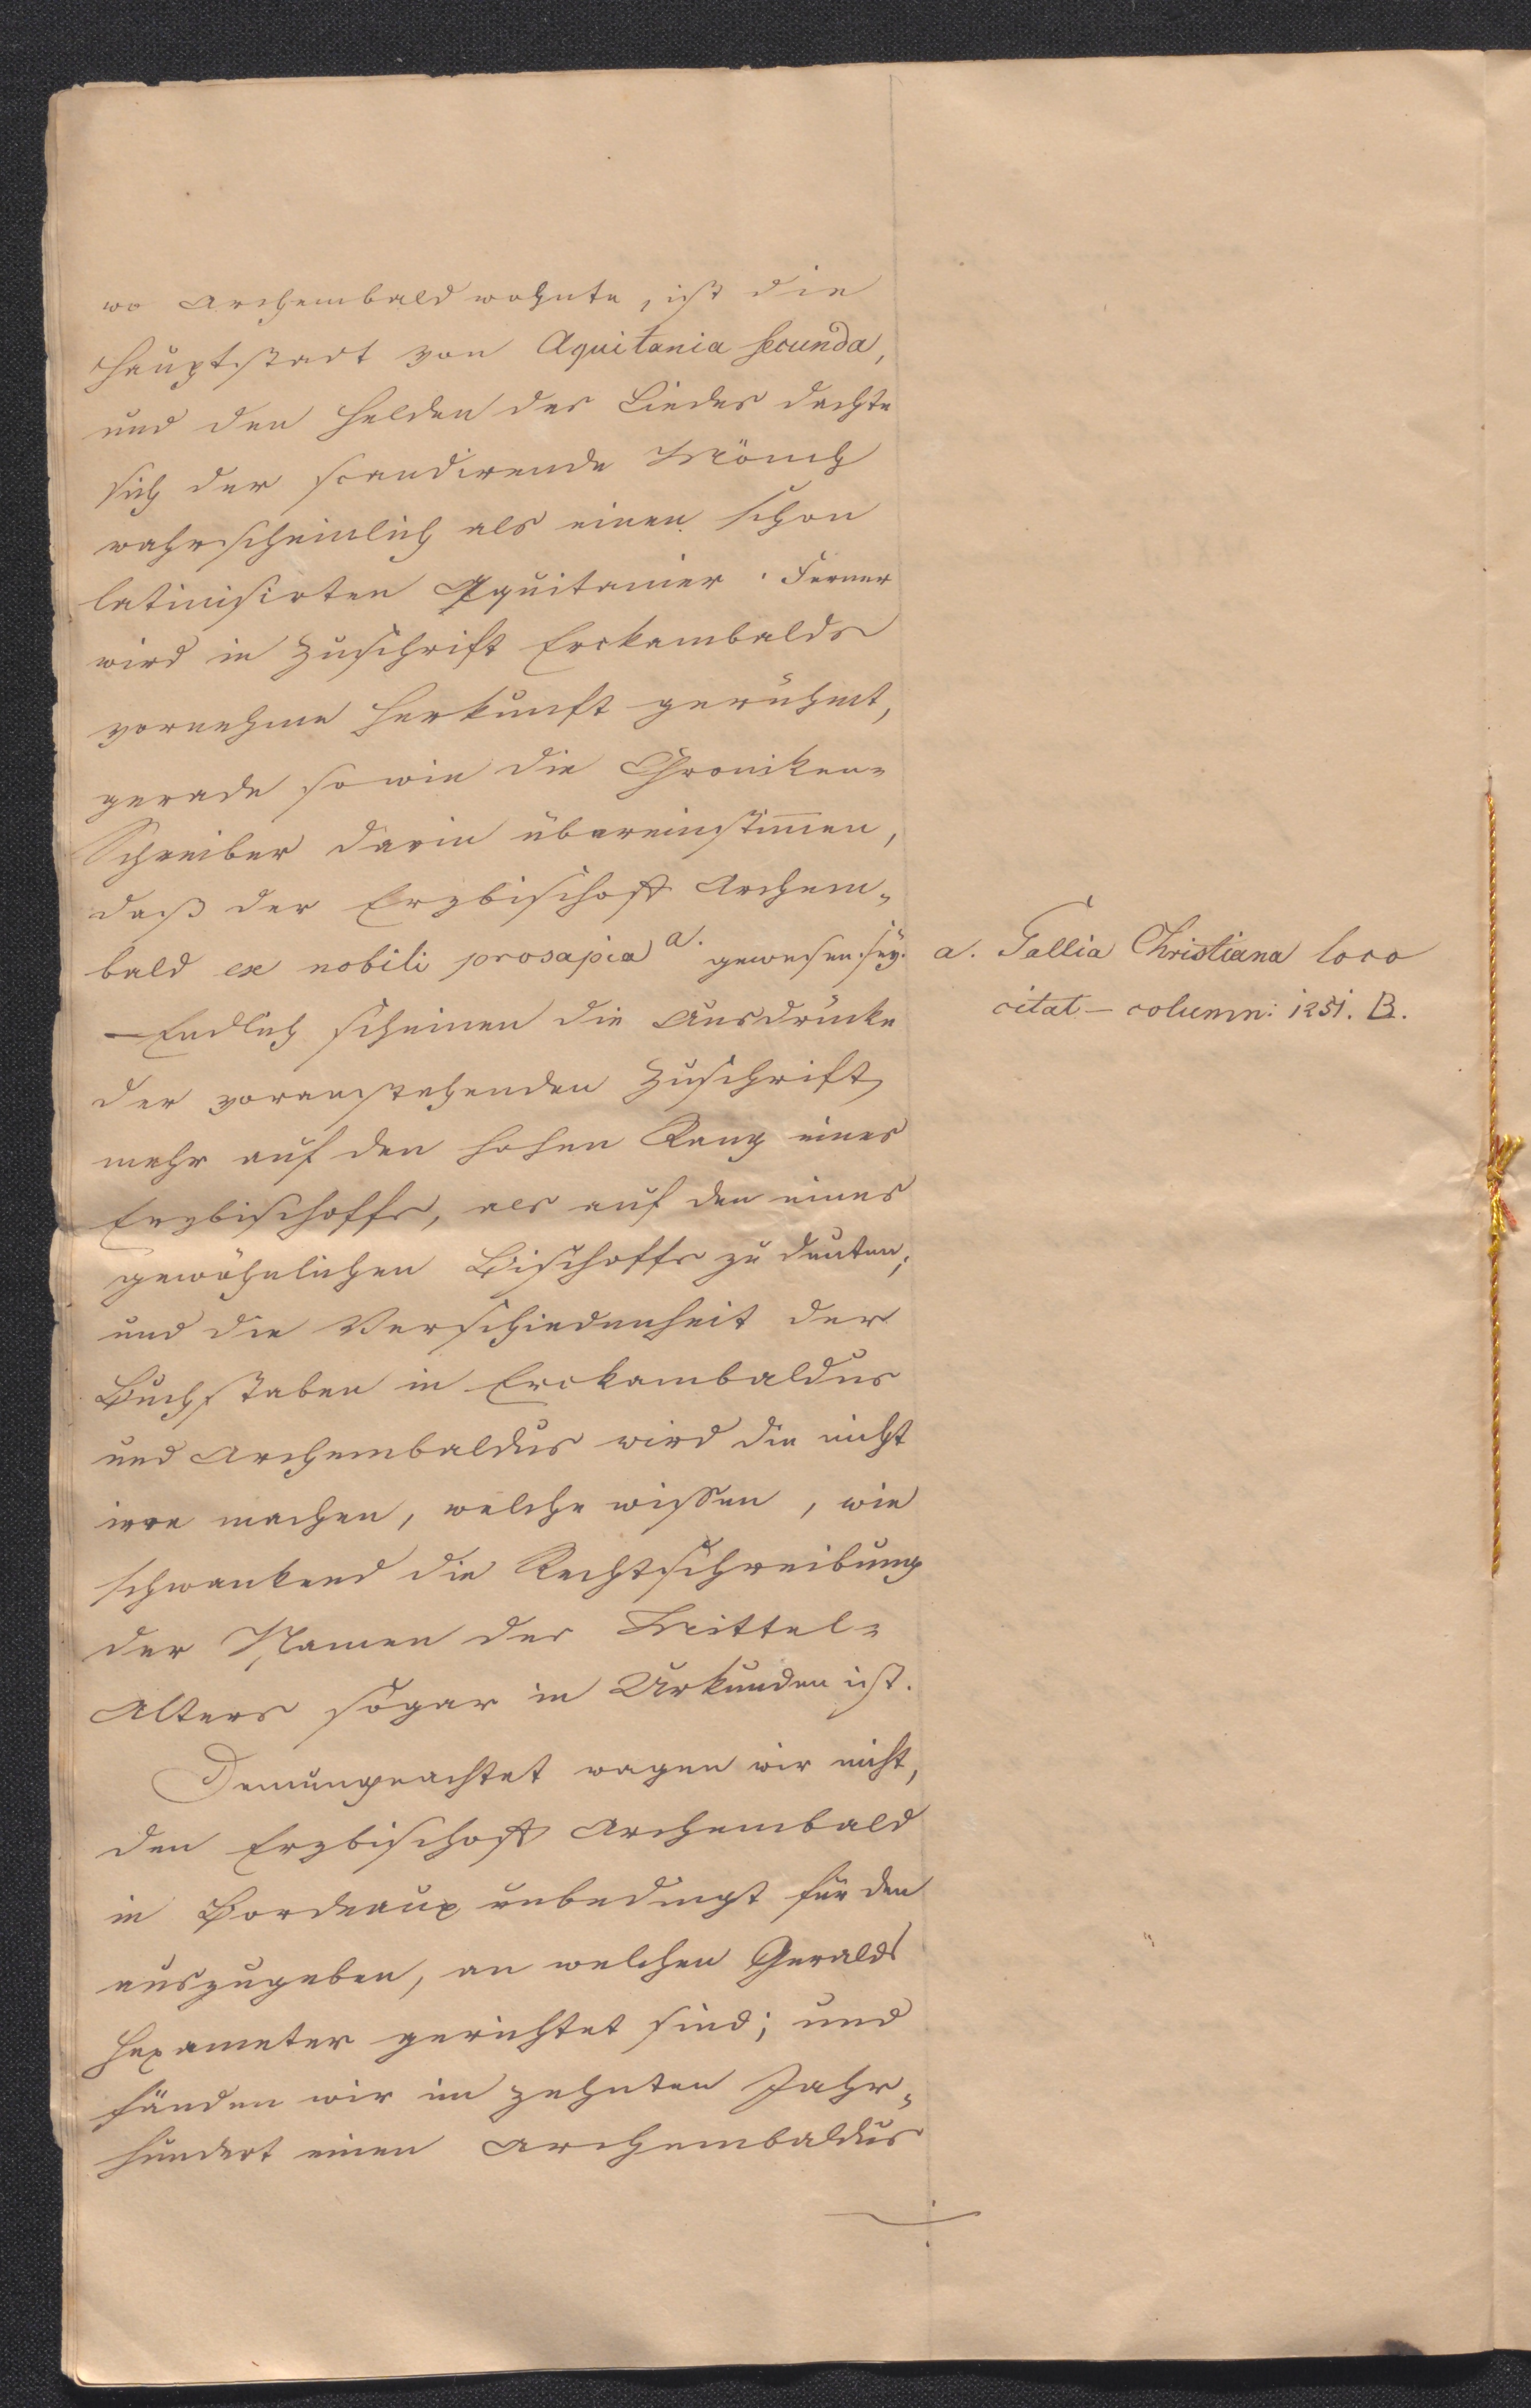 wo Archembald wohnte, ist die
Hauptstadt von Aquitania secunda,
und den Helden des Liedes dachte
sich der scandirende Mönch
wahrscheinlich als einen schon
latinisirten Aquitanier. Ferner
wird in Zuschrift Erckambalds
vornehme Herkunft gerühmt,
gerade sowie die Chroniken-
Schreiber darin übereinstim̅en,
daß der Erzbischoff Archem-
bald ex nobili prosapia a. gewesen sey.
— Endlich scheinen die Ausdrücke
der voranstehenden Zuschrift
mehr auf den hohen Rang eines
Erzbischoffs, als auf den eines
gewöhnlichen Bischoffs zu deuten;
und die Verschiedenheit der
Buchstaben in Erckambaldus
und Archembaldus wird die nicht
irre machen, welche wissen, wie
schwankend die Rechtschreibung
der Namen des Mittel-
Alters sogar in Urkunden ist.
Demungeachtet wagen wir nicht,
den Erzbischoff Archembald
in Bordeaux unbedingt für den
auszugeben, an welchen Geralds
Hexameter gerichtet sind; und
fänden wir im zehnten Jahr-
hundert einen Archembaldus
a. Gallia Christiana loco
citat — column: 1251. B.